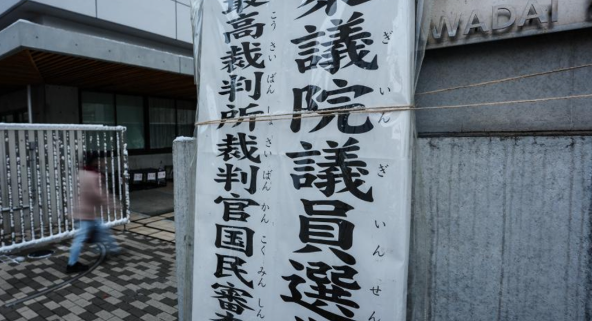 議院議員選
ぎいんぎいんせん
最高裁判所裁判官国民審
こうさいばんしょさいばんかんこくみんしん
WADAI